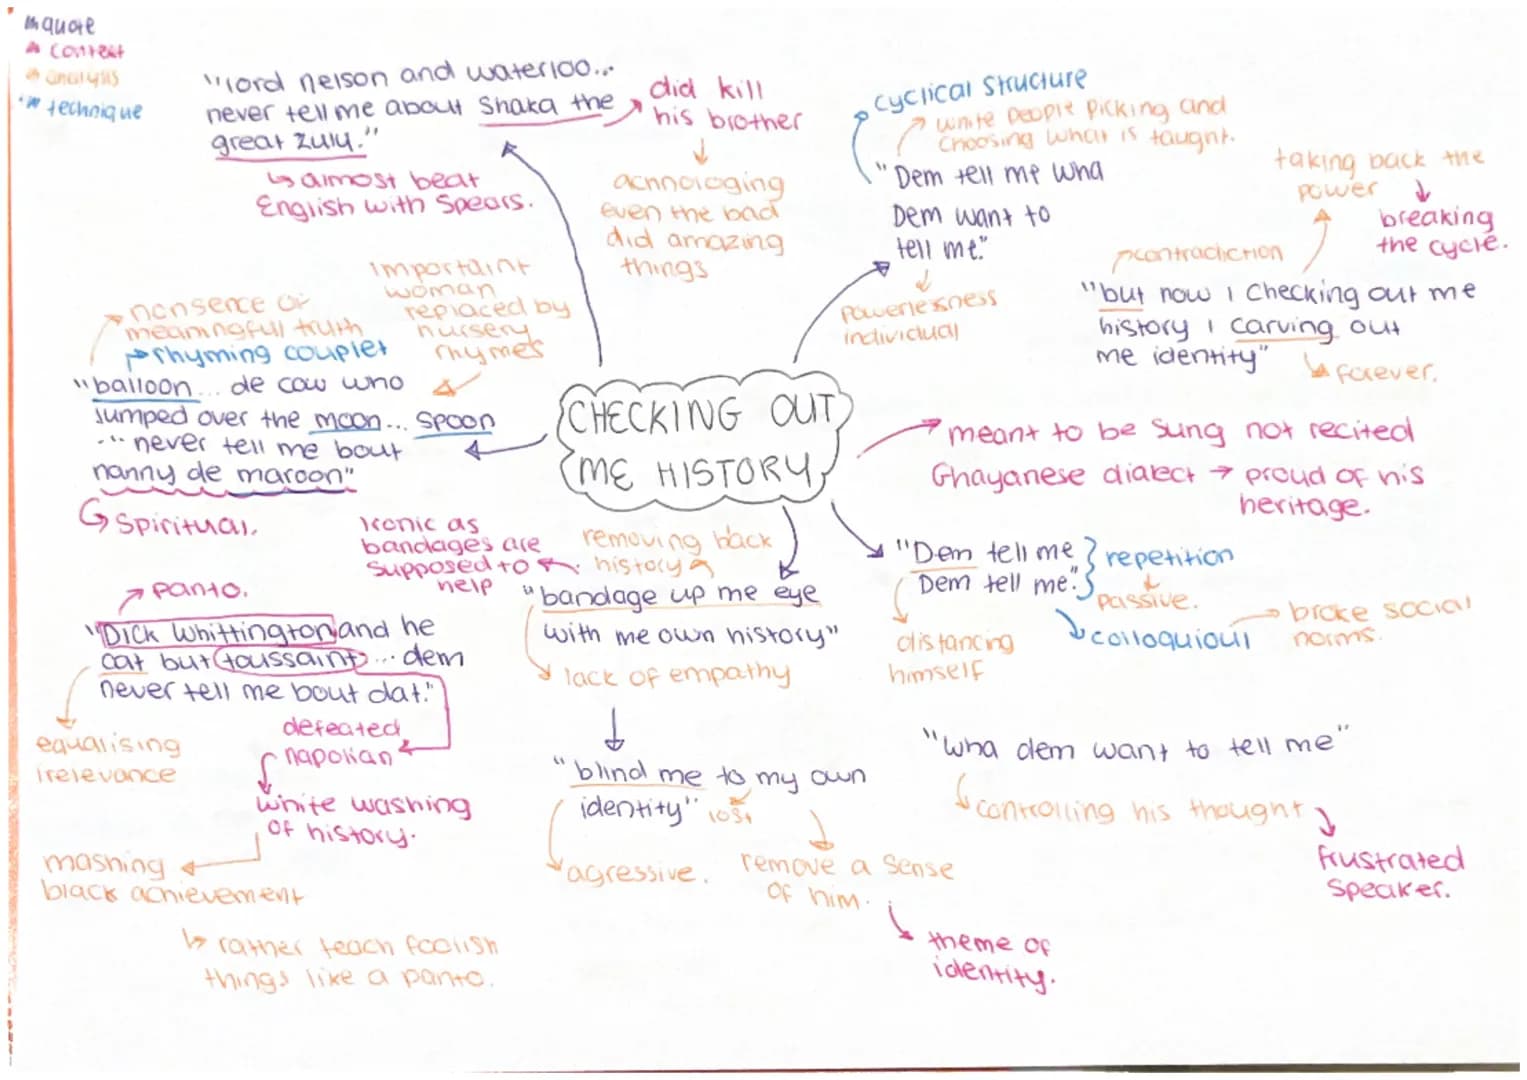 quote
context
analysis
technique
"lord nelson and waterloo...
never tell me about Shaka the
great zulu."
almost beat
English with Spears.
did kill
his brother
acnnologing
even the bad
did amazing
things
cyclical structure
white people picking and
choosing what is taught.
"Dem tell me wha
Dem want to
tell me."
powerlesness
individual
taking back the
power
breaking
the cycle.
contradiction
"but now i checking out me
history i carving out
me identity"
forever.
nonsence or
meaningfull truth
rhyming couplet
importaint
woman
replaced by
nursery
rhymes
"balloon... de cow who
jumped over the moon... spoon
..." never tell me bout
nanny de maroon"
Spiritual.
CHECKING OUT
ME HISTORY
meant to be sung not recited
Ghayanese dialect → proud of his
heritage.
Ironic as
bandages are
supposed to
help
removing black
history
"bandage up me eye
with me own history"
lack of empathy
"Dem tell me
Dem tell me."
repetition
passive.
colloquioul
broke social
norms.
distancing
himself
panto.
"Dick Whittington and he
cat but toussaint... dem
never tell me bout dat."
equalising
irelevance
defeated
napolian
white washing
of history.
mashing
black achievement
rather teach foolish
things like a panto.
"blind me to my own
identity"
lost
agressive.
remove a sense
of him.
theme of
identity.
"wha dem want to tell me"
controlling his thought
frustrated
speaker.